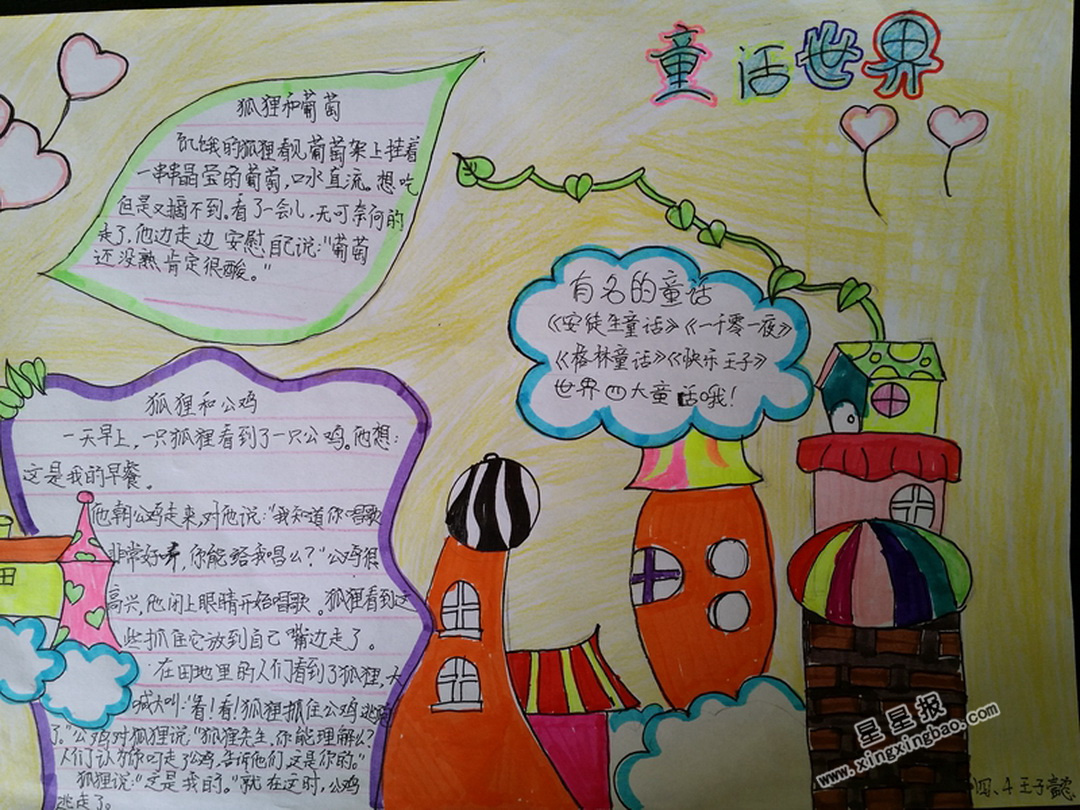 童话世界
狐狸和葡萄
饥饿的狐狸看见葡萄架上挂着
一串串晶莹的葡萄,口水直流。想吃
但是又摘不到。看了一会儿,无可奈何的
走了,他边走边安慰自己说:"葡萄
还没熟肯定很酸。"
有名的童话
《安徒生童话》《一千零一夜》
《格林童话》《快乐王子》
世界四大童话哦!
狐狸和公鸡
一天早上,一只狐狸看到了一只公鸡。他想:
这是我的早餐。
他朝公鸡走来,对他说:"我知道你唱歌
非常好听,你能给我唱么?"公鸡很
高兴,他闭上眼睛开始唱歌。狐狸看到这
些抓住它放到自己嘴边走了。
在田地里的人们看到了狐狸,大
喊大叫:"看!看!狐狸抓住公鸡逃
了。"公鸡对狐狸说"狐狸先生,你能理解么?
人们认为你叼走了公鸡,告诉他们,这是你的。"
狐狸说:"这是我的。"就在这时,公鸡
逃走了。
星星报
www.xingxingbao.com
四、4 王子